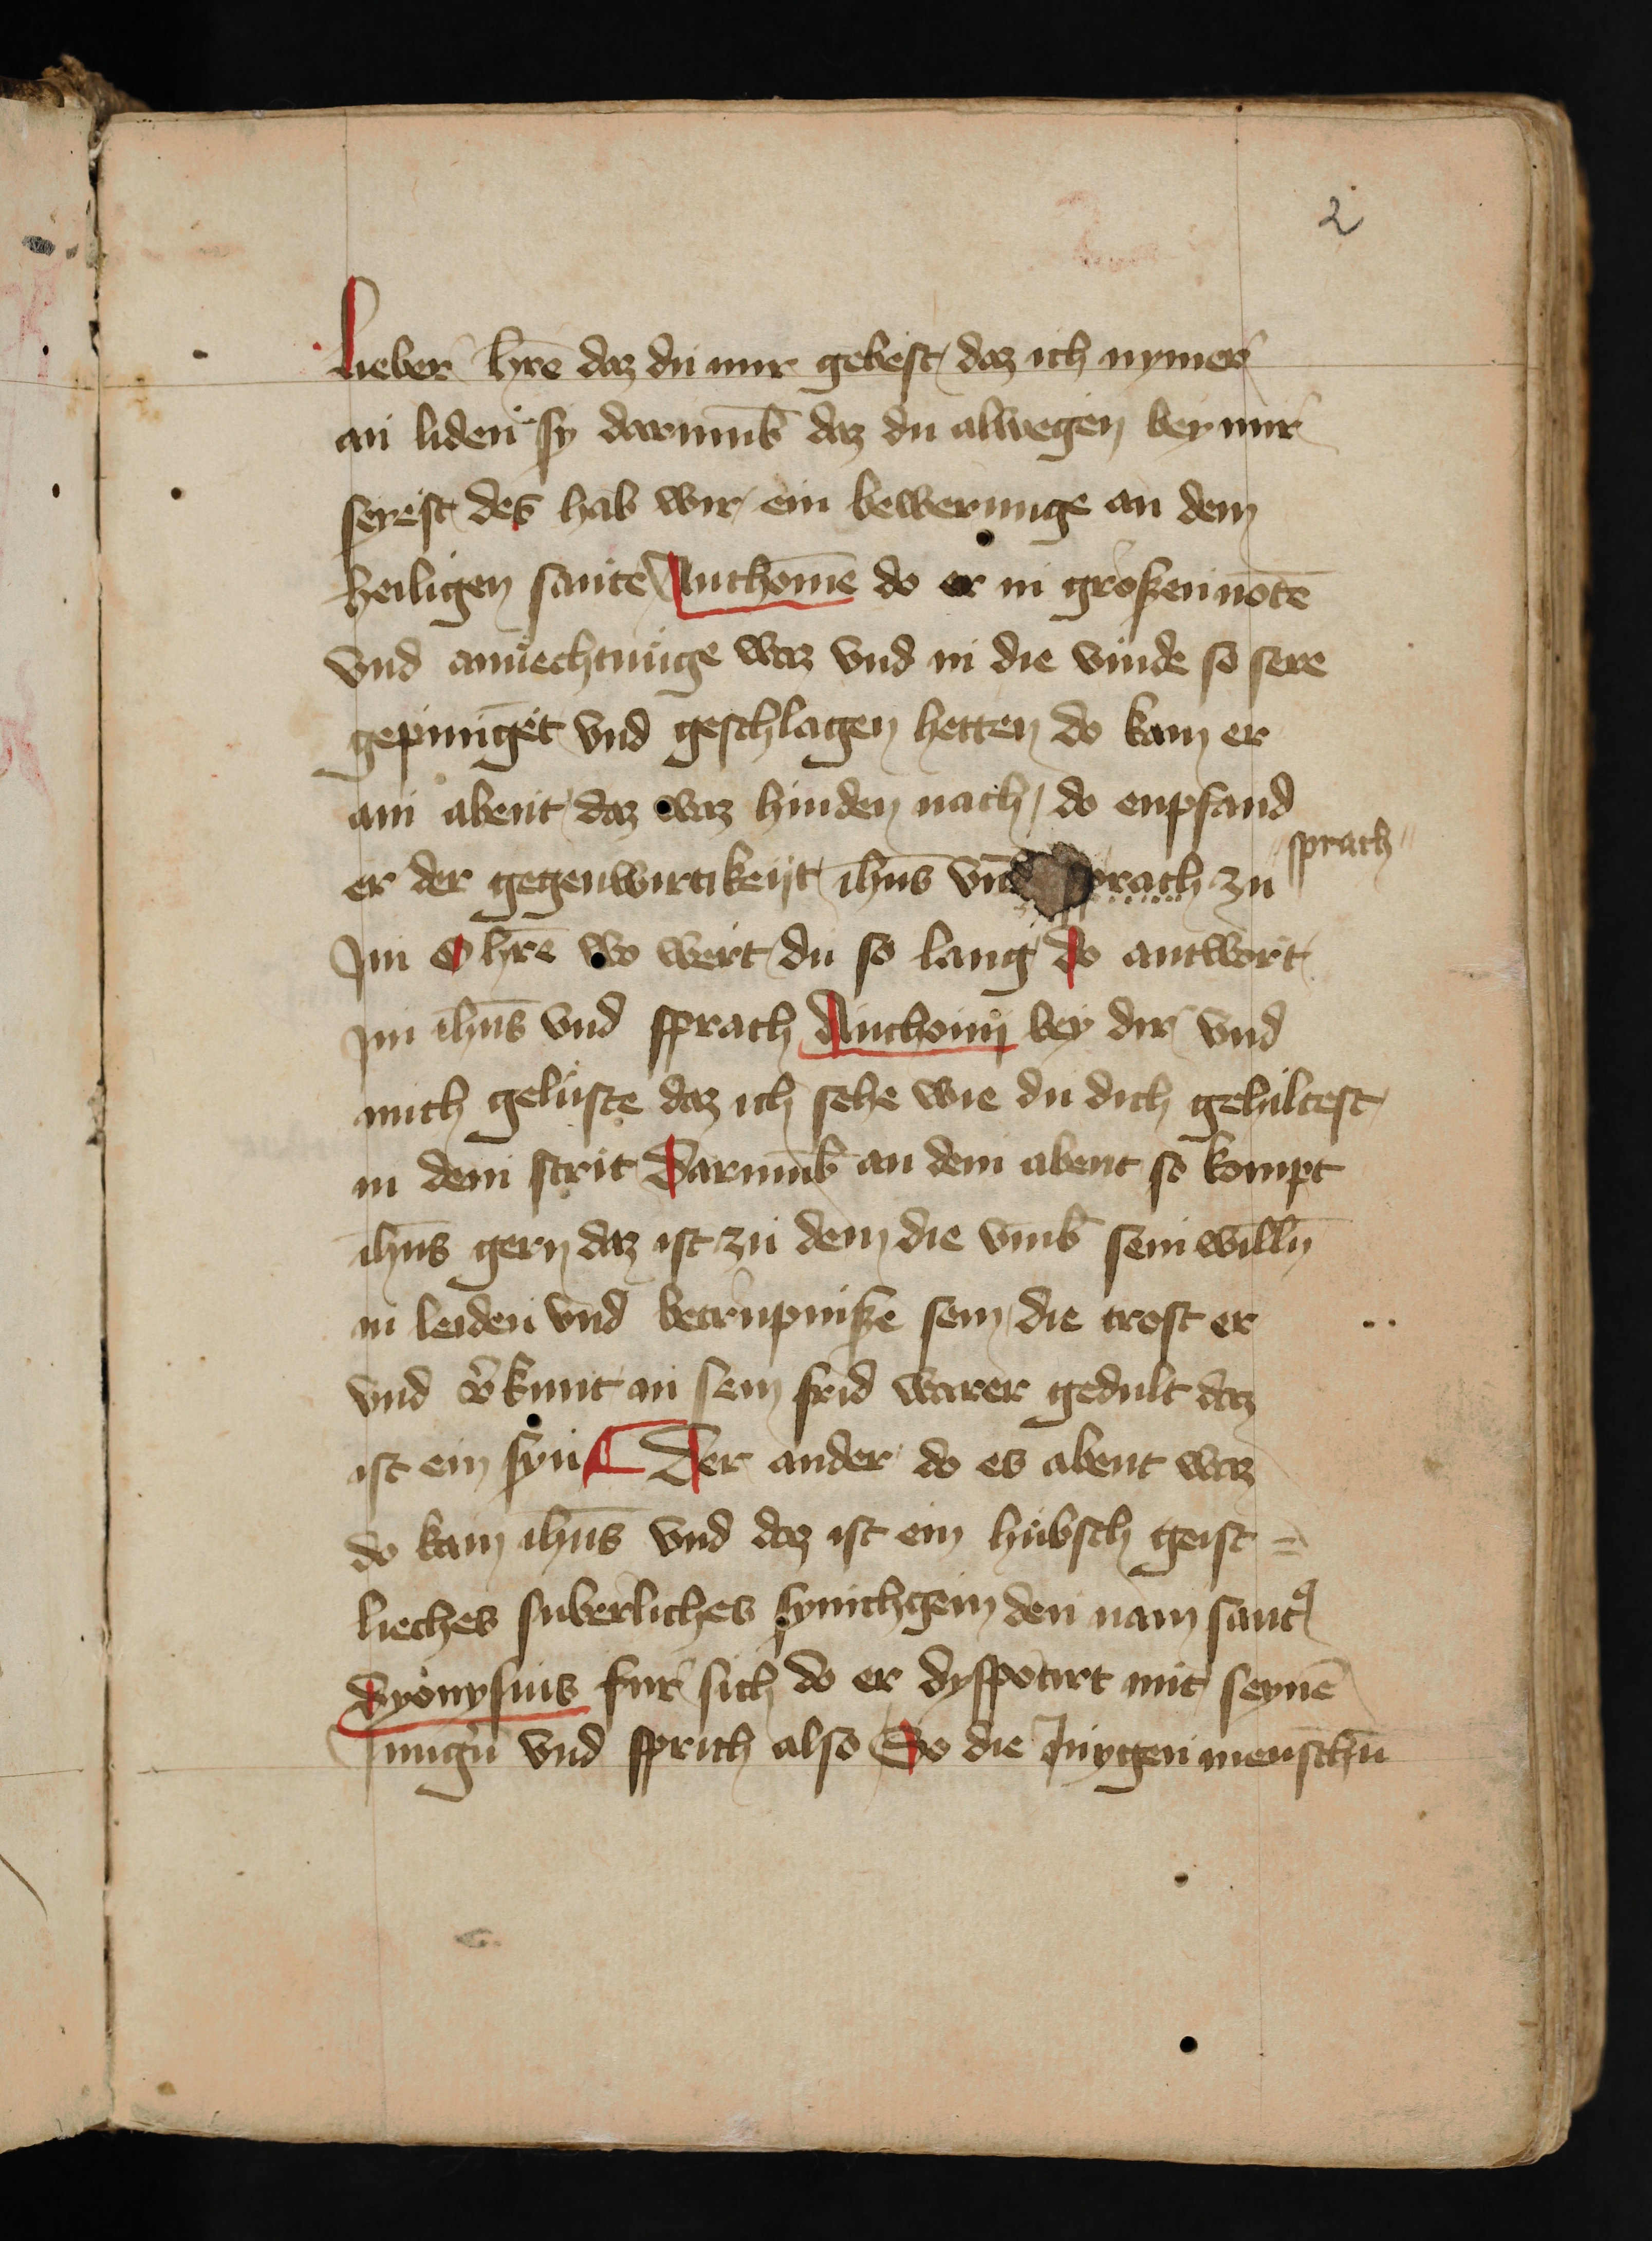 2
Lieber hr̄e daz du mir gebest daz ich nymer
an liden sy darumb daz du alwegen bey mir
seyest des hab wir ein bewerunge an dem
heiligen sante Anthonie do er in großen noten
vnd anuechtunge waz vnd in die vinde so sere
gepiniget vnd geschlagen hetten do kam er
am abent daz waz hinden nach do enpfand
er der gegenwirtikeyt ihūs vnd sprach zu sprach
Im O hr̄e wo wert du so lang do antwort
im ihūs vnd sprach Anthoni bey dir vnd
mich geluste daz ich sehe wie du dich gehiltest
in dem strit Darumb an dem abent so kompt
ihūs gern daz ist zu dem die vmb sein willn̄
in leiden vnd betrupniße sein die trost er
vnd v̄kunt in sein frid warer gedult daz
ist ein syn Der ander do es abent waz
do kam ihūs vnd daz ist ein hubsch geist =
lieches suberliches synichgein den nam sant9
Dyonysius fur sich do er dyspotirt mit seynē
Jungn̄ vnd sprich also So die Inygen menschn̄